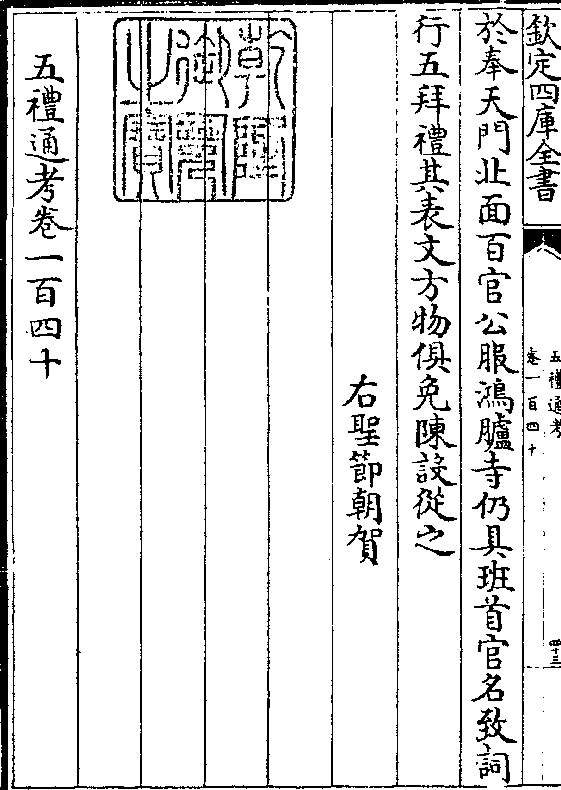 欽定四庫全書
五禮通考
卷一百四十
四十三
於奉天門北面百官公服鴻臚寺仍具班首官名致詞
行五拜禮其表文方物俱免陳設從之
右聖節朝賀
乾隆御覽之寶
五禮通考卷一百四十